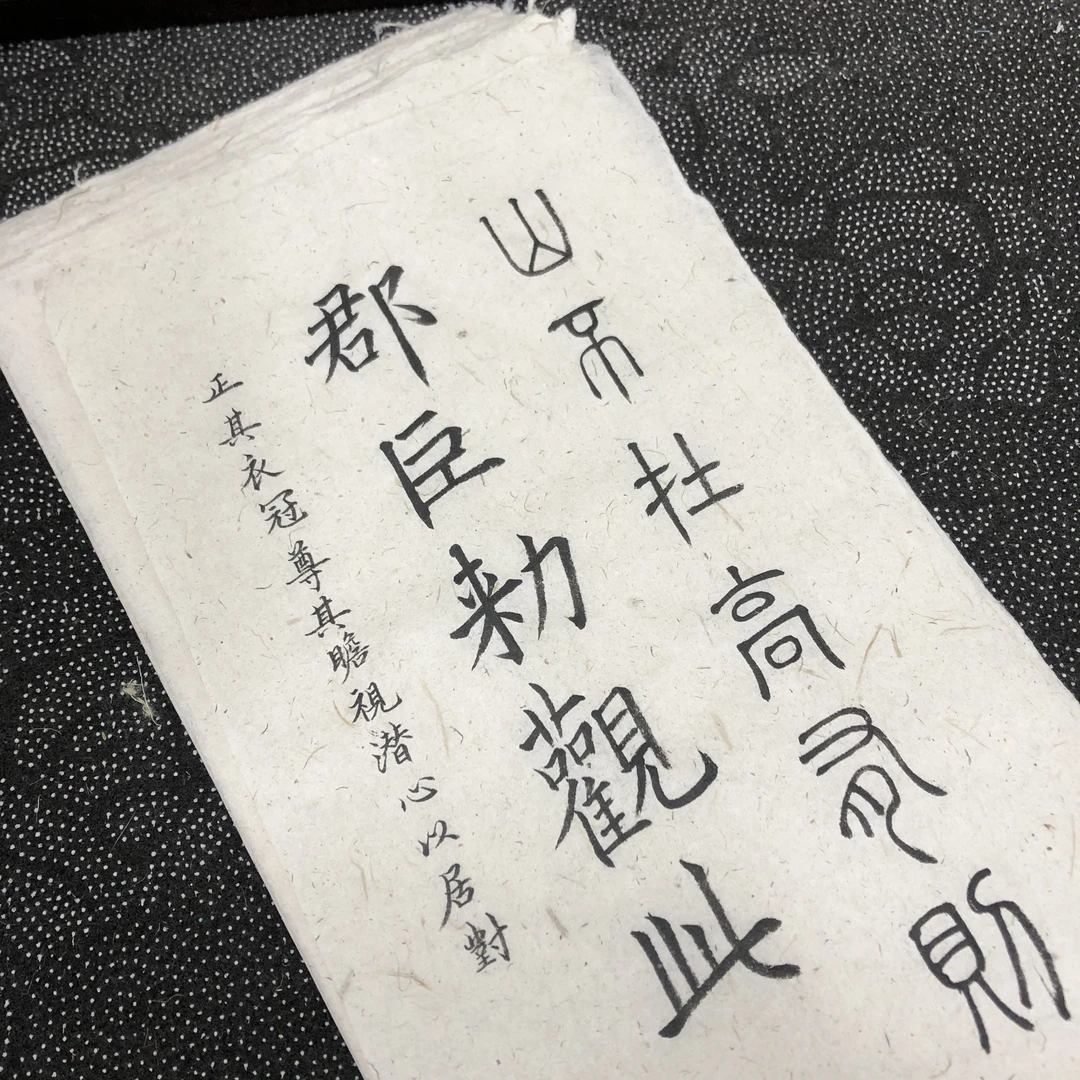 山不在高有則
郡臣勑觀此
正其衣冠尊其瞻視潜心以居對